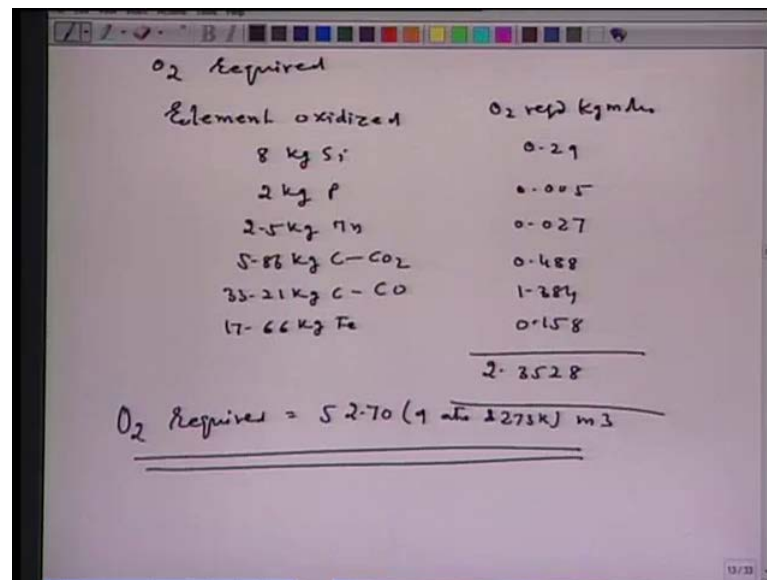 O2 Required
Element oxidized O2 reqd kgmole
8 kg Si 0.29
2 kg P 0.005
2.5 kg Mn 0.027
5.86 kg C-CO2 0.488
33.21 kg C-CO 1.384
17.66 kg Fe 0.158
2.3528
O2 Required = 52.70 (1 atm & 273K) m3
13/33